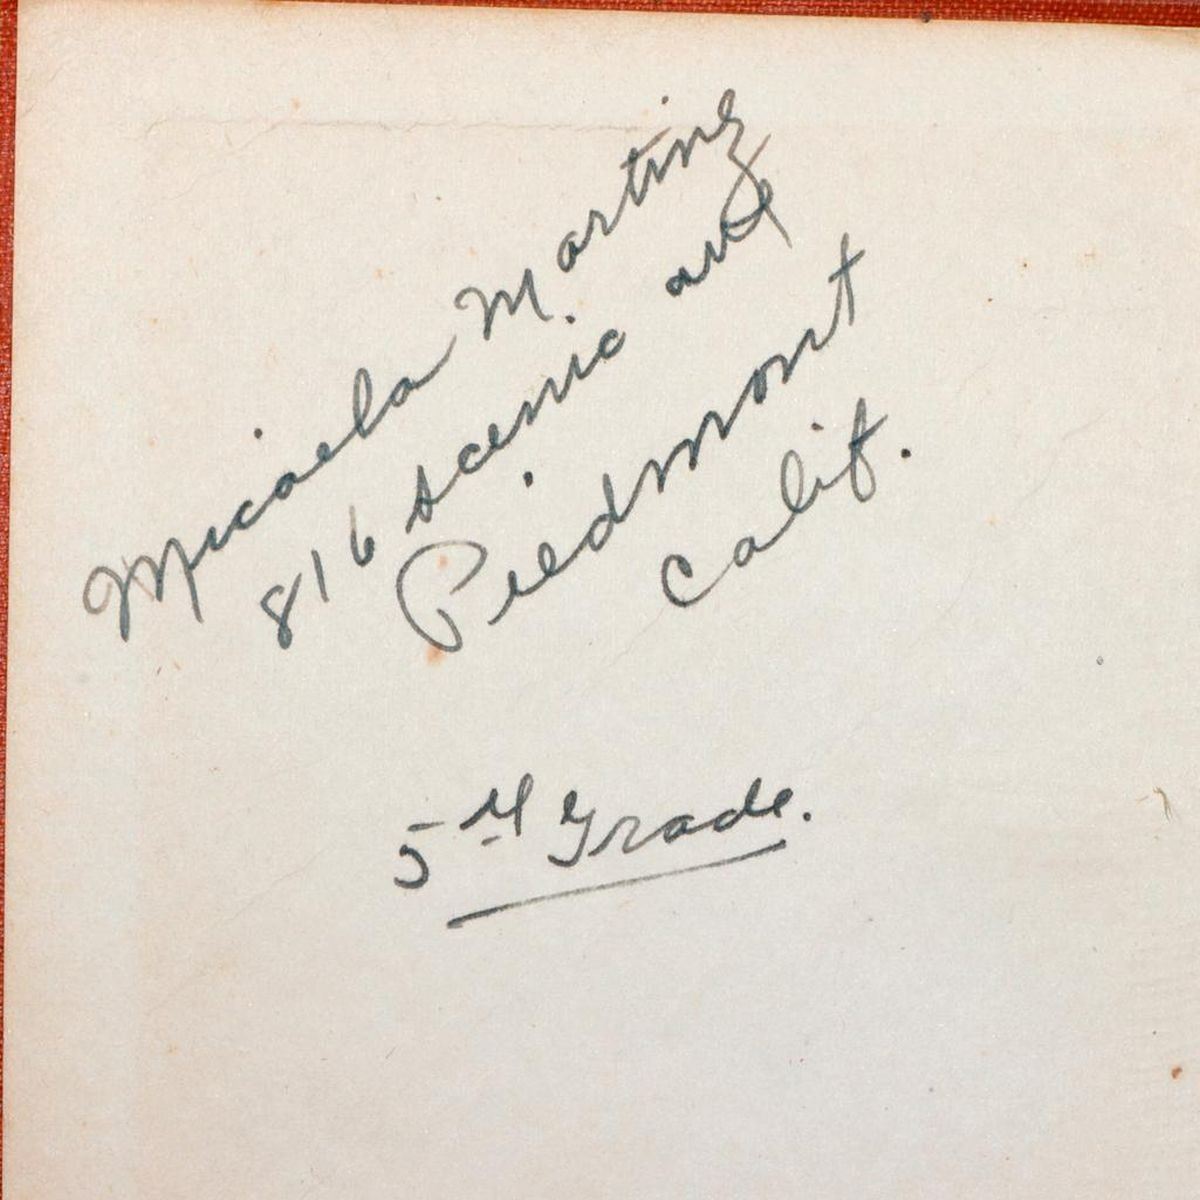 Micaela Martinez
816 Scenic ave
Piedmont
Calif.
5th Grade.